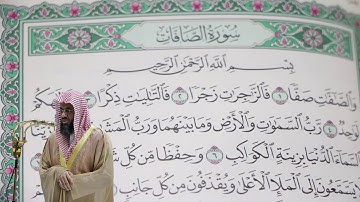 سُورَةُ الصَّافَّاتِ
بِسْمِ اللَّهِ الرَّحْمَٰنِ الرَّحِيمِ
وَالصَّٰٓفَّٰتِ صَفًّا ١ فَالزَّٰجِرَٰتِ زَجْرًا ٢ فَالتَّٰلِيَٰتِ ذِكْرًا ٣
رَّبُّ السَّمَٰوَٰتِ وَالْأَرْضِ وَمَا بَيْنَهُمَا وَرَبُّ
السَّمَآءَ الدُّنْيَا بِزِينَةٍ الْكَوَاكِبِ ٦ وَحِفْظًا مِّن كُلِّ
يَسَّمَّعُونَ إِلَى الْمَلَإِ الْأَعْلَىٰ وَيُقْذَفُونَ مِن كُلِّ جَانِبٍ